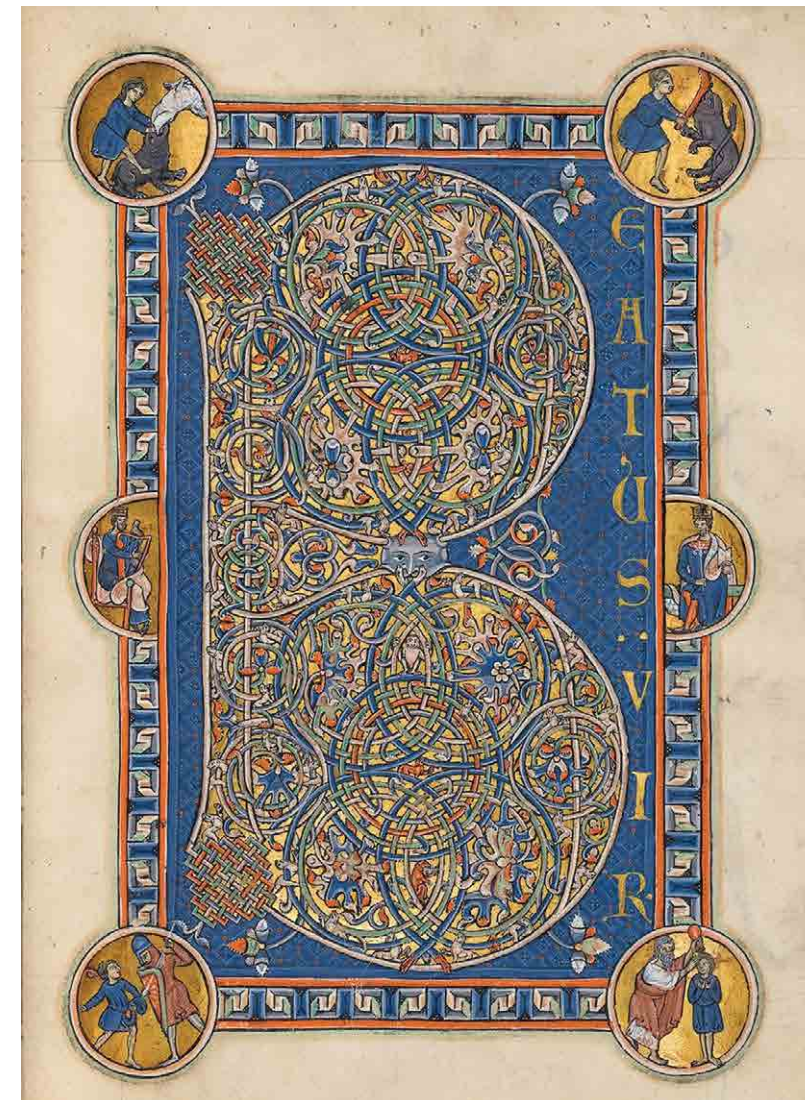 B
EATUS: VIR